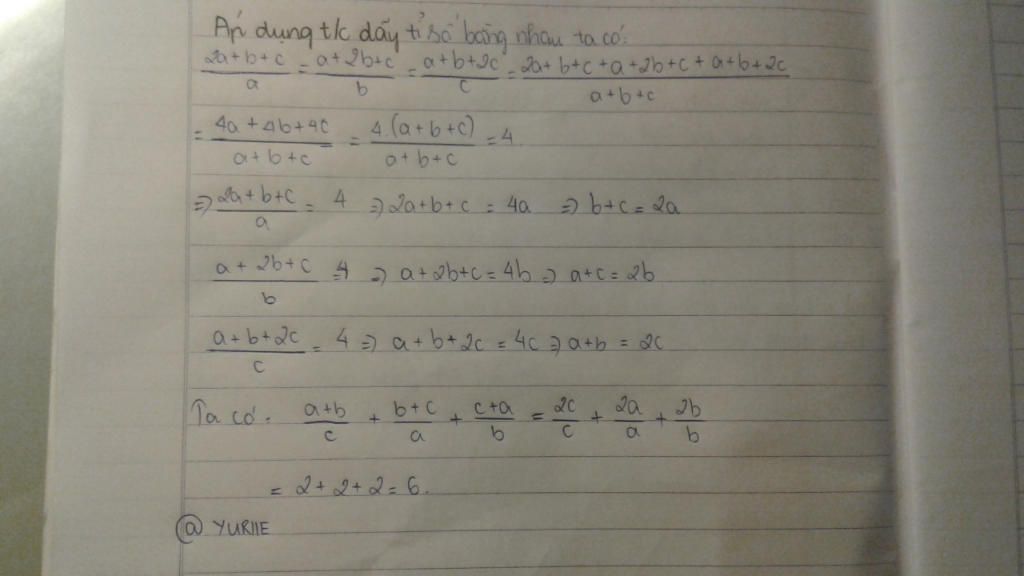 Áp dụng t/c dãy tỉ số bằng nhau ta có:
(2a+b+c)/a = (a+2b+c)/b = (a+b+2c)/c = (2a+b+c+a+2b+c+a+b+2c)/(a+b+c)
= (4a+4b+4c)/(a+b+c) = 4.(a+b+c)/(a+b+c) = 4.
⇒ (2a+b+c)/a = 4 ⇒ 2a+b+c = 4a ⇒ b+c = 2a
(a+2b+c)/b = 4 ⇒ a+2b+c = 4b ⇒ a+c = 2b
(a+b+2c)/c = 4 ⇒ a+b+2c = 4c ⇒ a+b = 2c
Ta có: (a+b)/c + (b+c)/a + (c+a)/b = 2c/c + 2a/a + 2b/b
= 2+2+2 = 6.
@ YURIIE